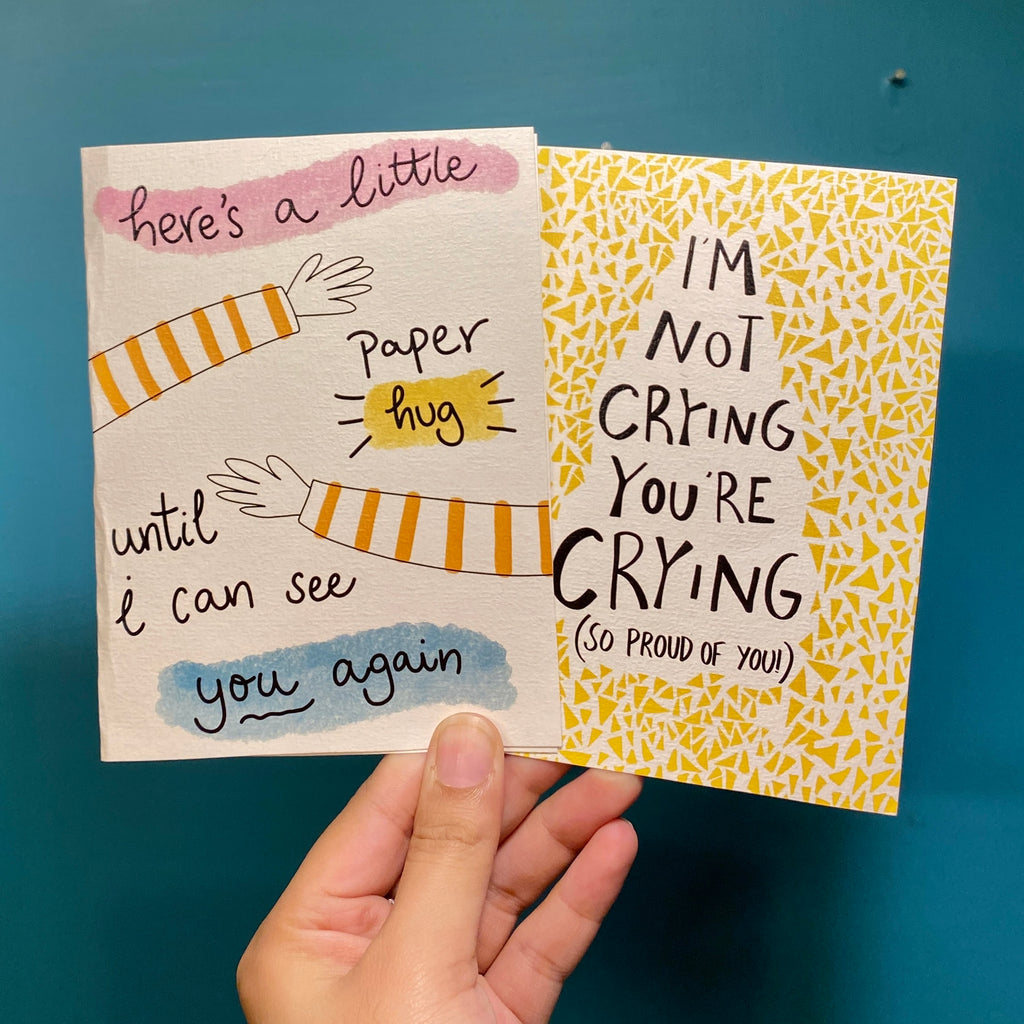 here's a little
paper
hug
until
i can see
you again
I'M
NOT
CRYING
YOU'RE
CRYING
(SO PROUD OF YOU!)